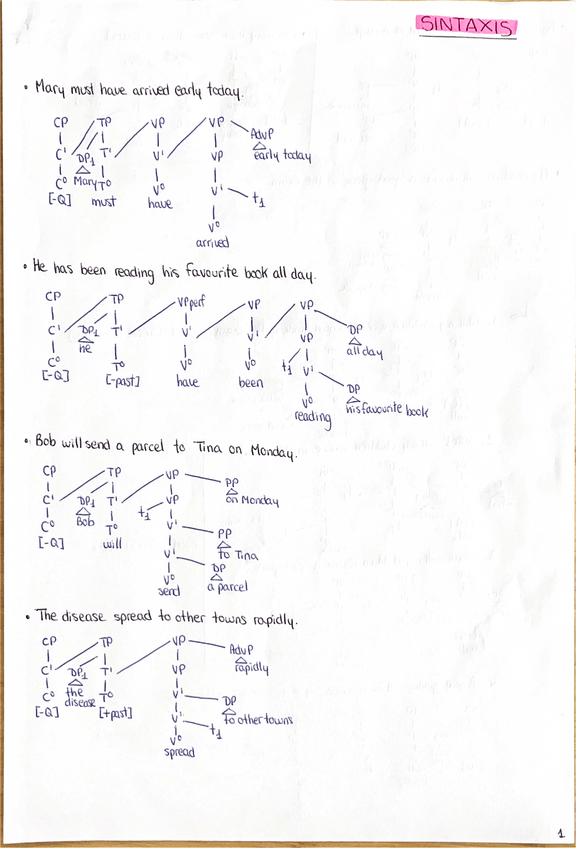 SINTAXIS
• Mary must have arrived early today.
CP TP VP VP
AdvP
C' DP1 T' V' VP early today
C⁰ Mary T⁰ V⁰ V' t1
[-Q] must have V⁰
arrived
• He has been reading his favourite book all day.
CP TP VPperf VP VP
C' DP1 T' V' V' VP DP
he all day
C⁰ T⁰ V⁰ V⁰ t1 V'
[-Q] [-past] have been DP
V⁰ his favourite book
reading
• Bob will send a parcel to Tina on Monday.
CP TP VP PP
C' DP1 T' VP on Monday
Bob t1
C⁰ T⁰ V' PP
[-Q] will to Tina
V' DP
V⁰ a parcel
send
• The disease spread to other towns rapidly.
CP TP VP AdvP
C' DP1 T' VP rapidly
C⁰ the disease T⁰ V' DP
[-Q] [+past] to other towns
V' t1
V⁰
spread
1